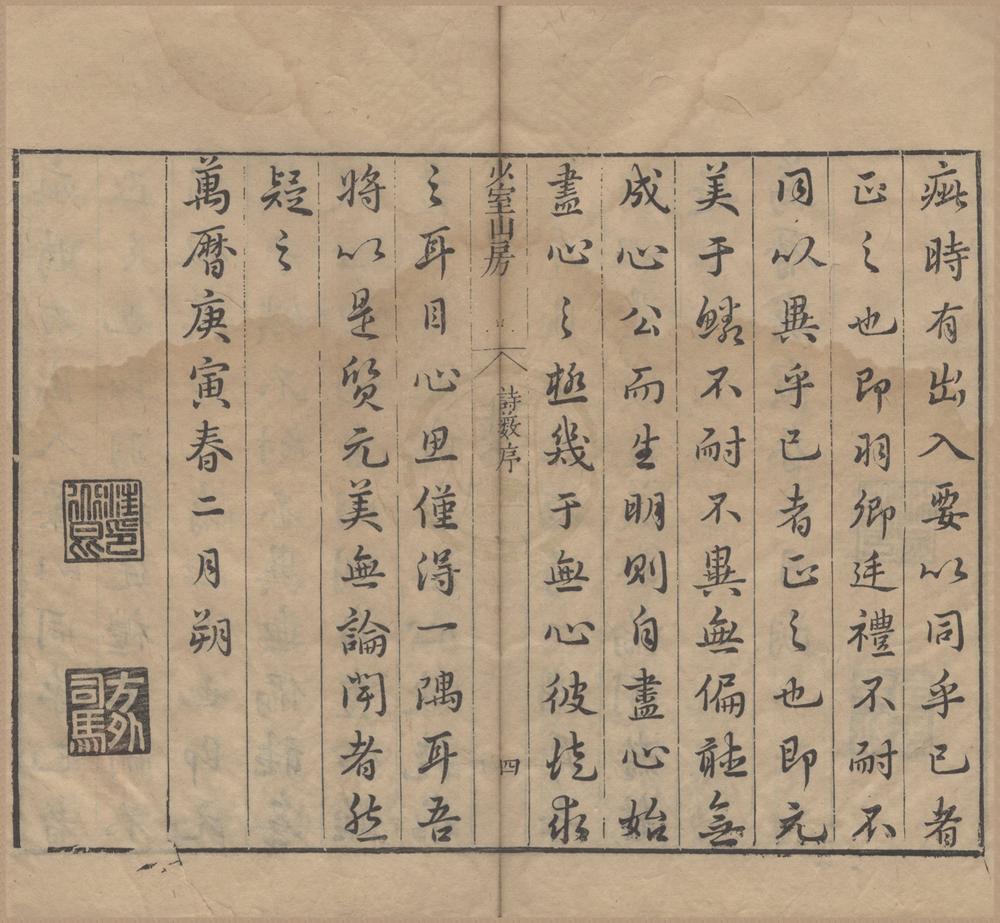 疵時有出入要以同乎已者
正之也即羽卿廷禮不耐不
同以異乎已者正之也即元
美于鱗不耐不異無偏聽無
成心公而生明則自盡心始
盡心之極幾于無心彼
之耳目心思僅得一隅耳吾
將以是質元美無論聞者然
疑之
萬曆庚寅春二月朔
少室山房
詩藪序
四
汪道昆印
方外司馬